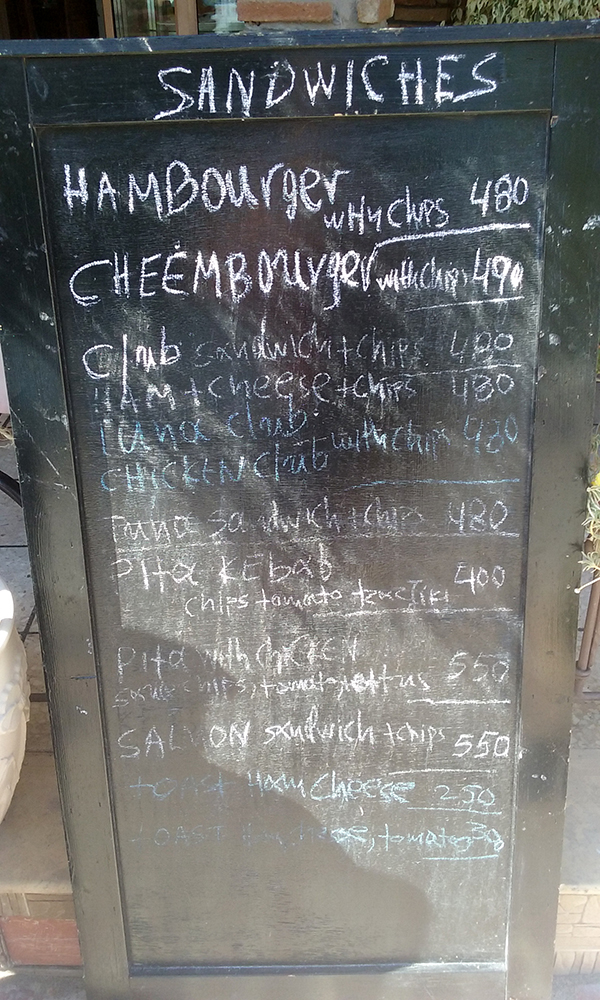 SANDWICHES
HAMBOurger wITH chips 480
CHEEMBOurger with chips 490
Club sandwich + chips 480
HAM + cheese + chips 480
Tuna club with chips 480
CHICKEN club
Tuna sandwich + chips 480
PITA KEbab 400
chips tomato
PITA with chicKEN 550
chips, tomato,
SALMON sandwich + chips 550
tOAST Ham Cheese 250
tOAST Ham, cheese, tomato